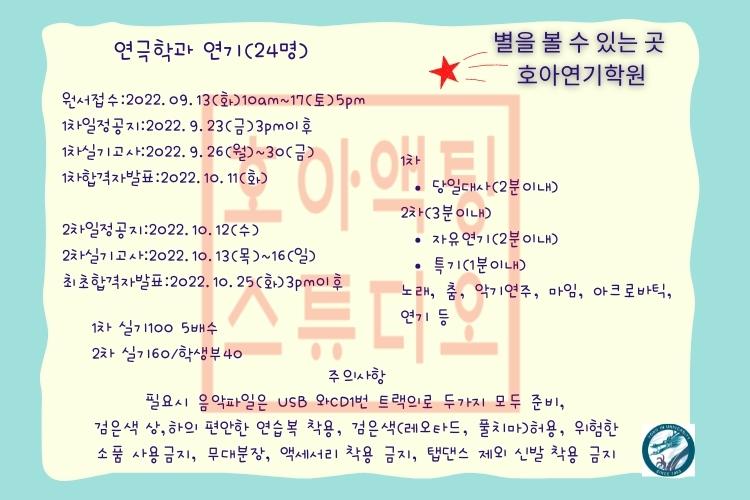 연극학과 연기(24명)
별을 볼 수 있는 곳
호아연기학원
원서접수:2022.09.13(화)10am~17(토)5pm
1차일정공지:2022.9.23(금)3pm이후
1차실기고사:2022.9.26(월)~30(금)
1차합격자발표:2022.10.11(화)
2차일정공지:2022.10.12(수)
2차실기고사:2022.10.13(목)~16(일)
최초합격자발표:2022.10.25(화)3pm이후
1차 실기100 5배수
2차 실기60/학생부40
1차
• 당일대사(2분이내)
2차(3분이내)
• 자유연기(2분이내)
• 특기(1분이내)
노래, 춤, 악기연주, 마임, 아크로바틱,
연기 등
호아액팅
스튜디오
주의사항
필요시 음악파일은 USB 와CD1번 트랙의로 두가지 모두 준비,
검은색 상,하의 편안한 연습복 착용, 검은색(레오타드, 풀치마)허용, 위험한
소품 사용금지, 무대분장, 액세서리 착용 금지, 탭댄스 제외 신발 착용 금지